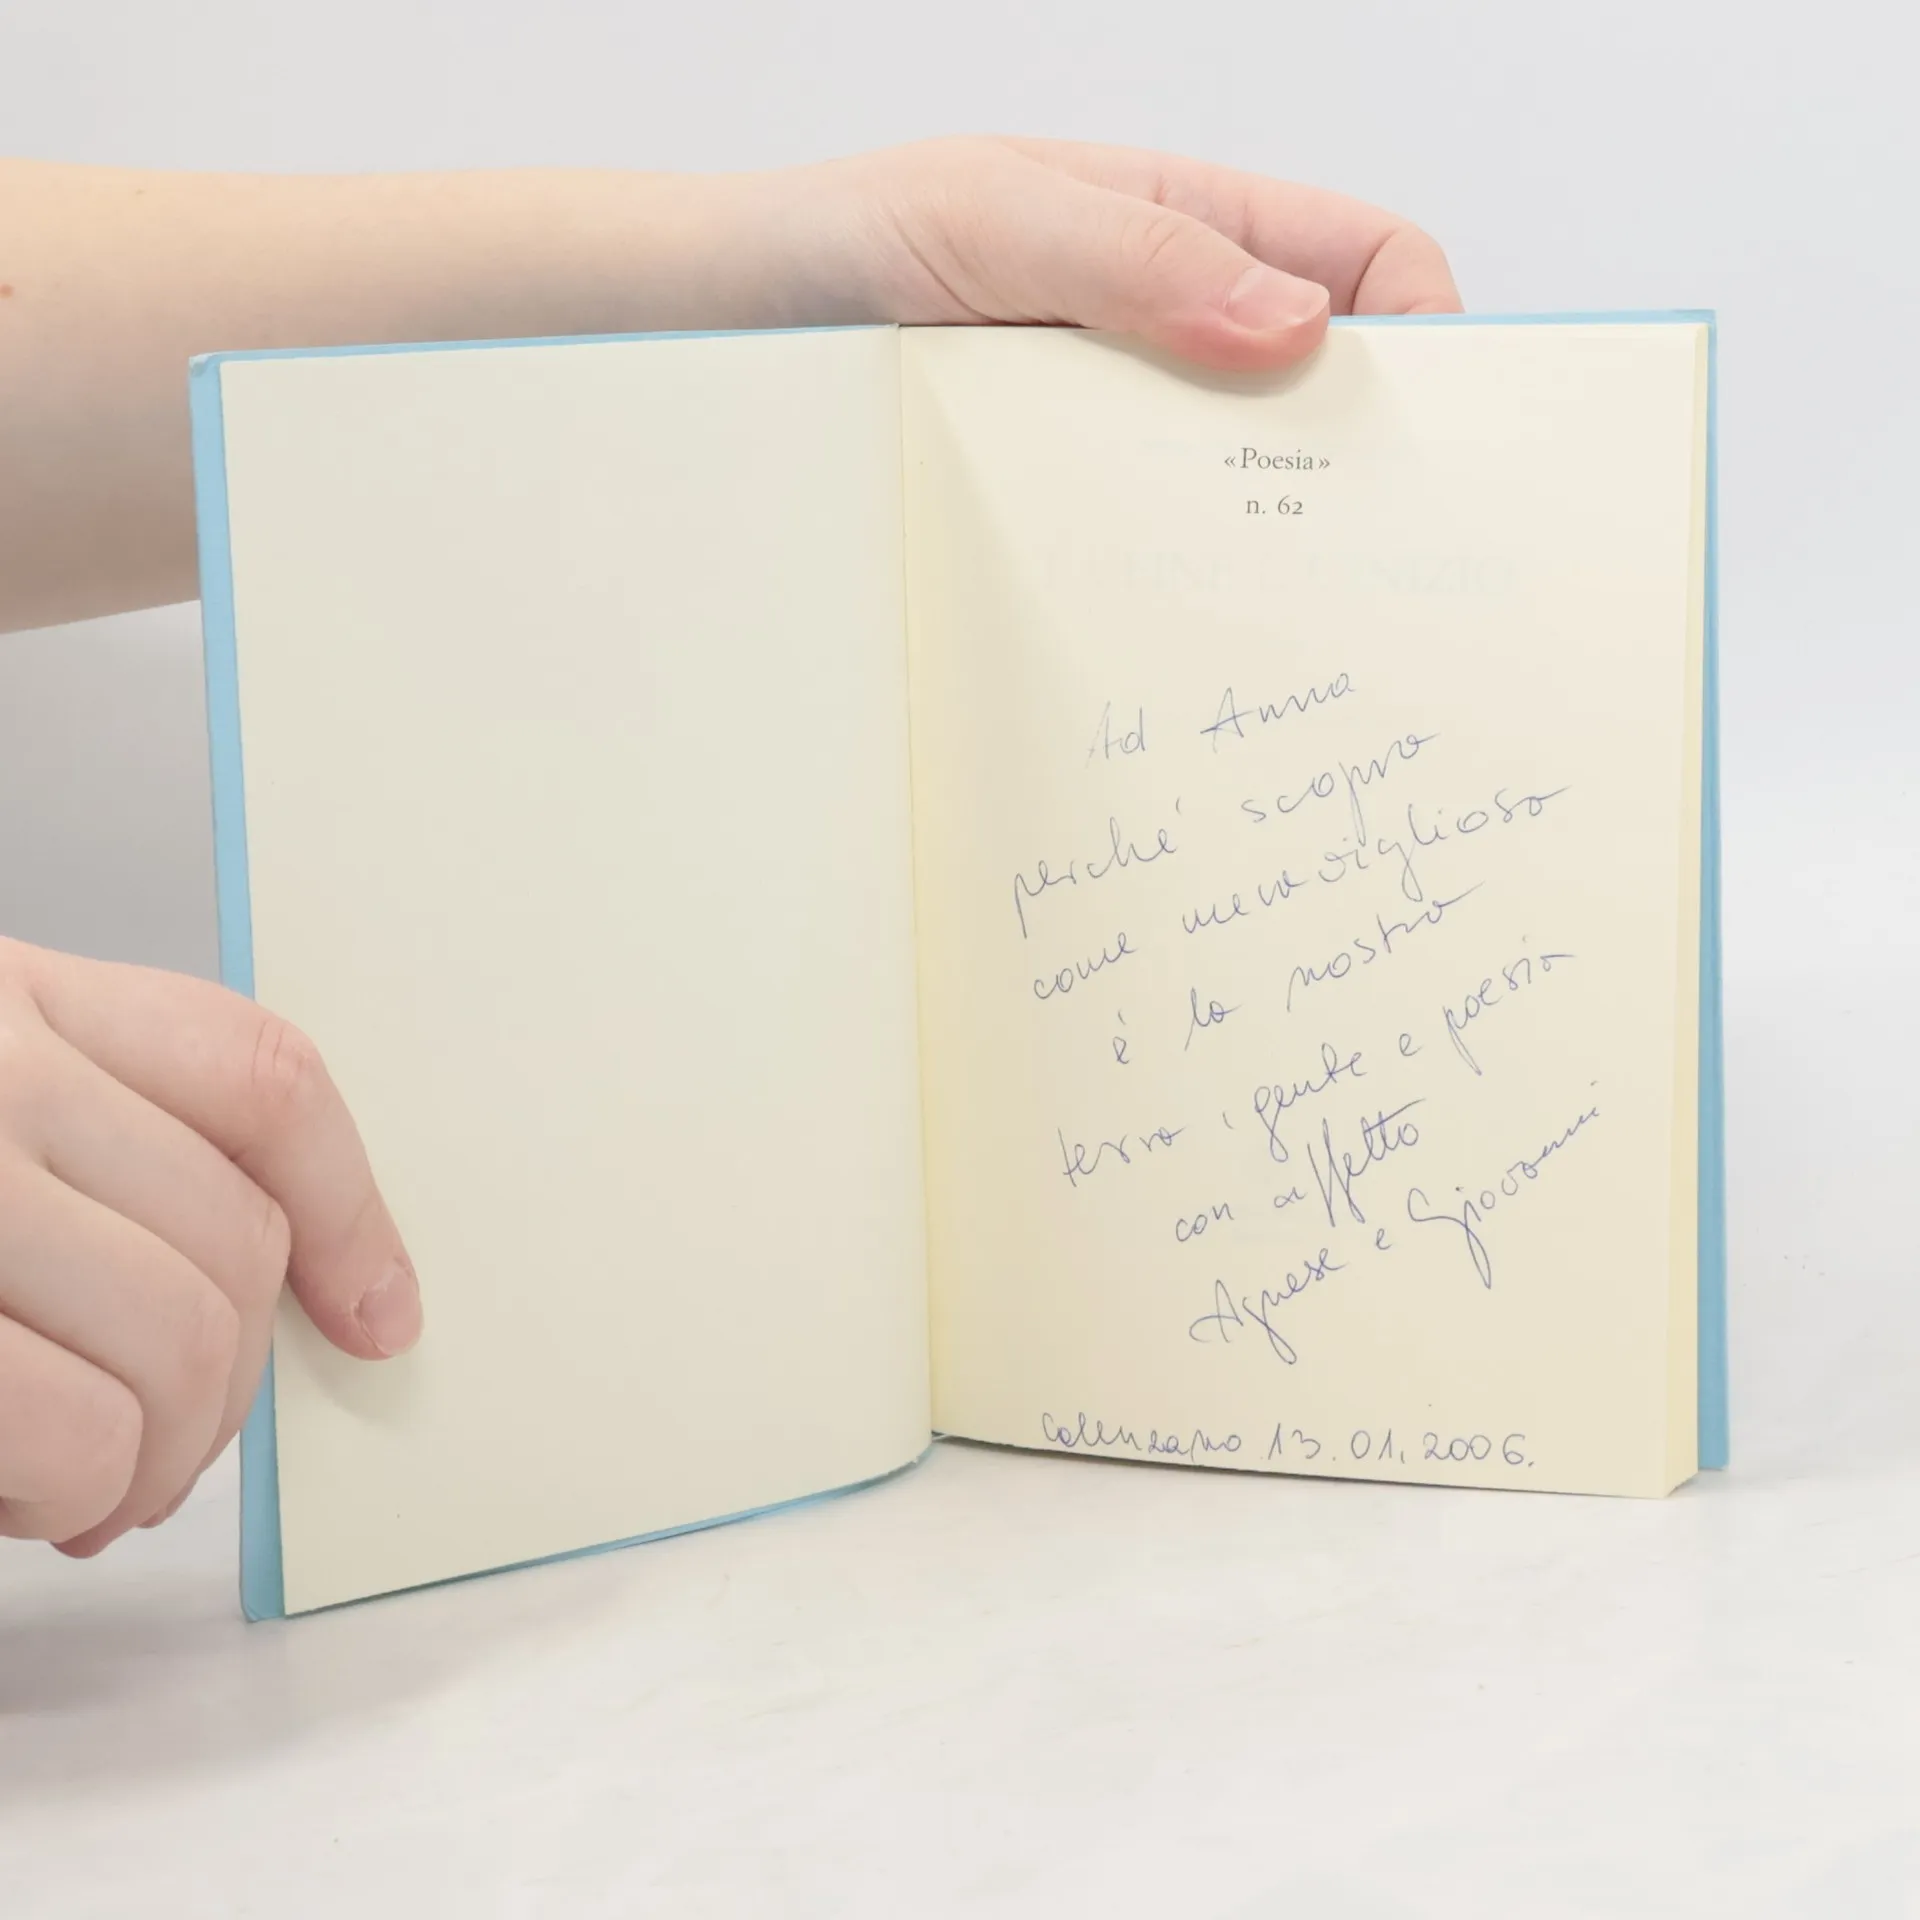 «Poesia»
n. 62
FINE INIZIO
Ad Anna
perché scopra
come meravigliosa
è la nostra
terra, gente e poesia
con affetto
Agnese e Giovanni
Calenzano 13.01.2006.